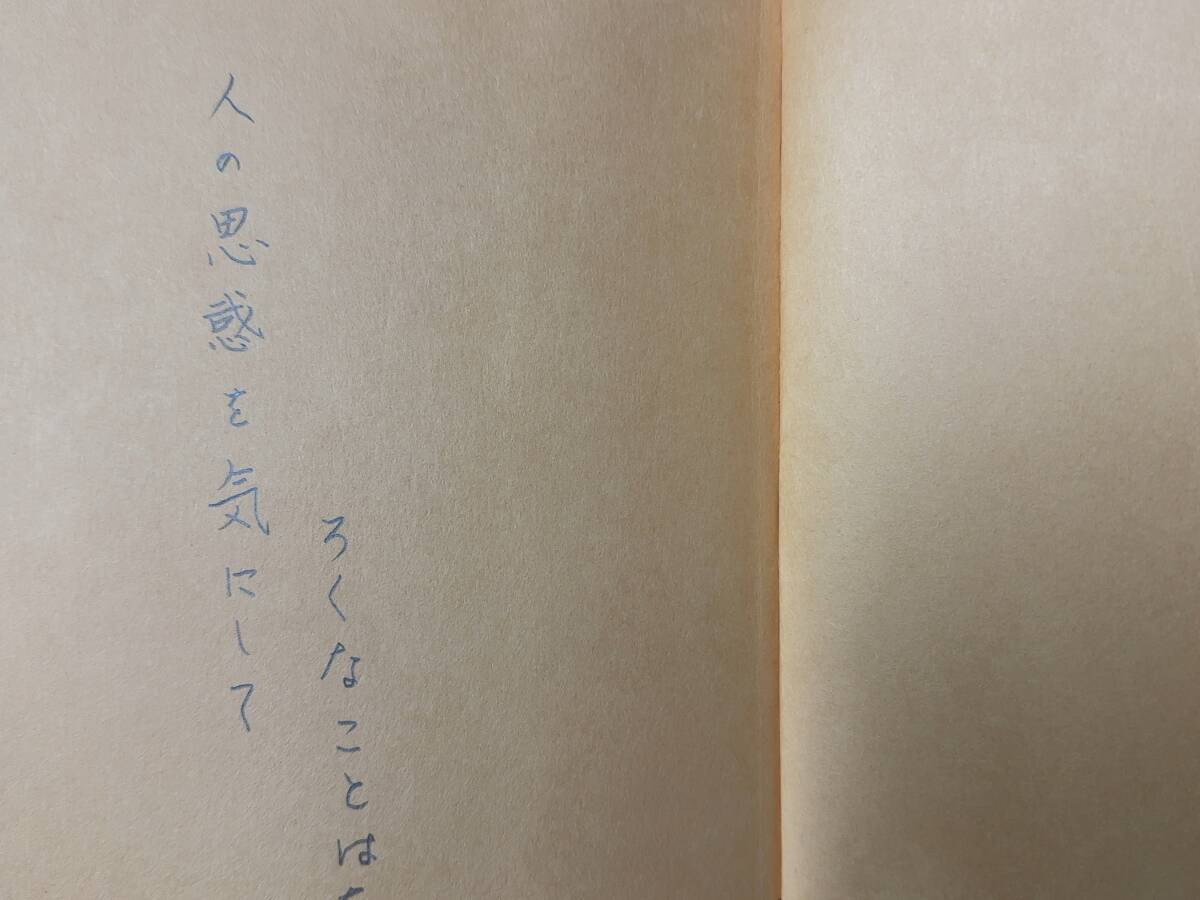 人の思惑を気にして
ろくなことは